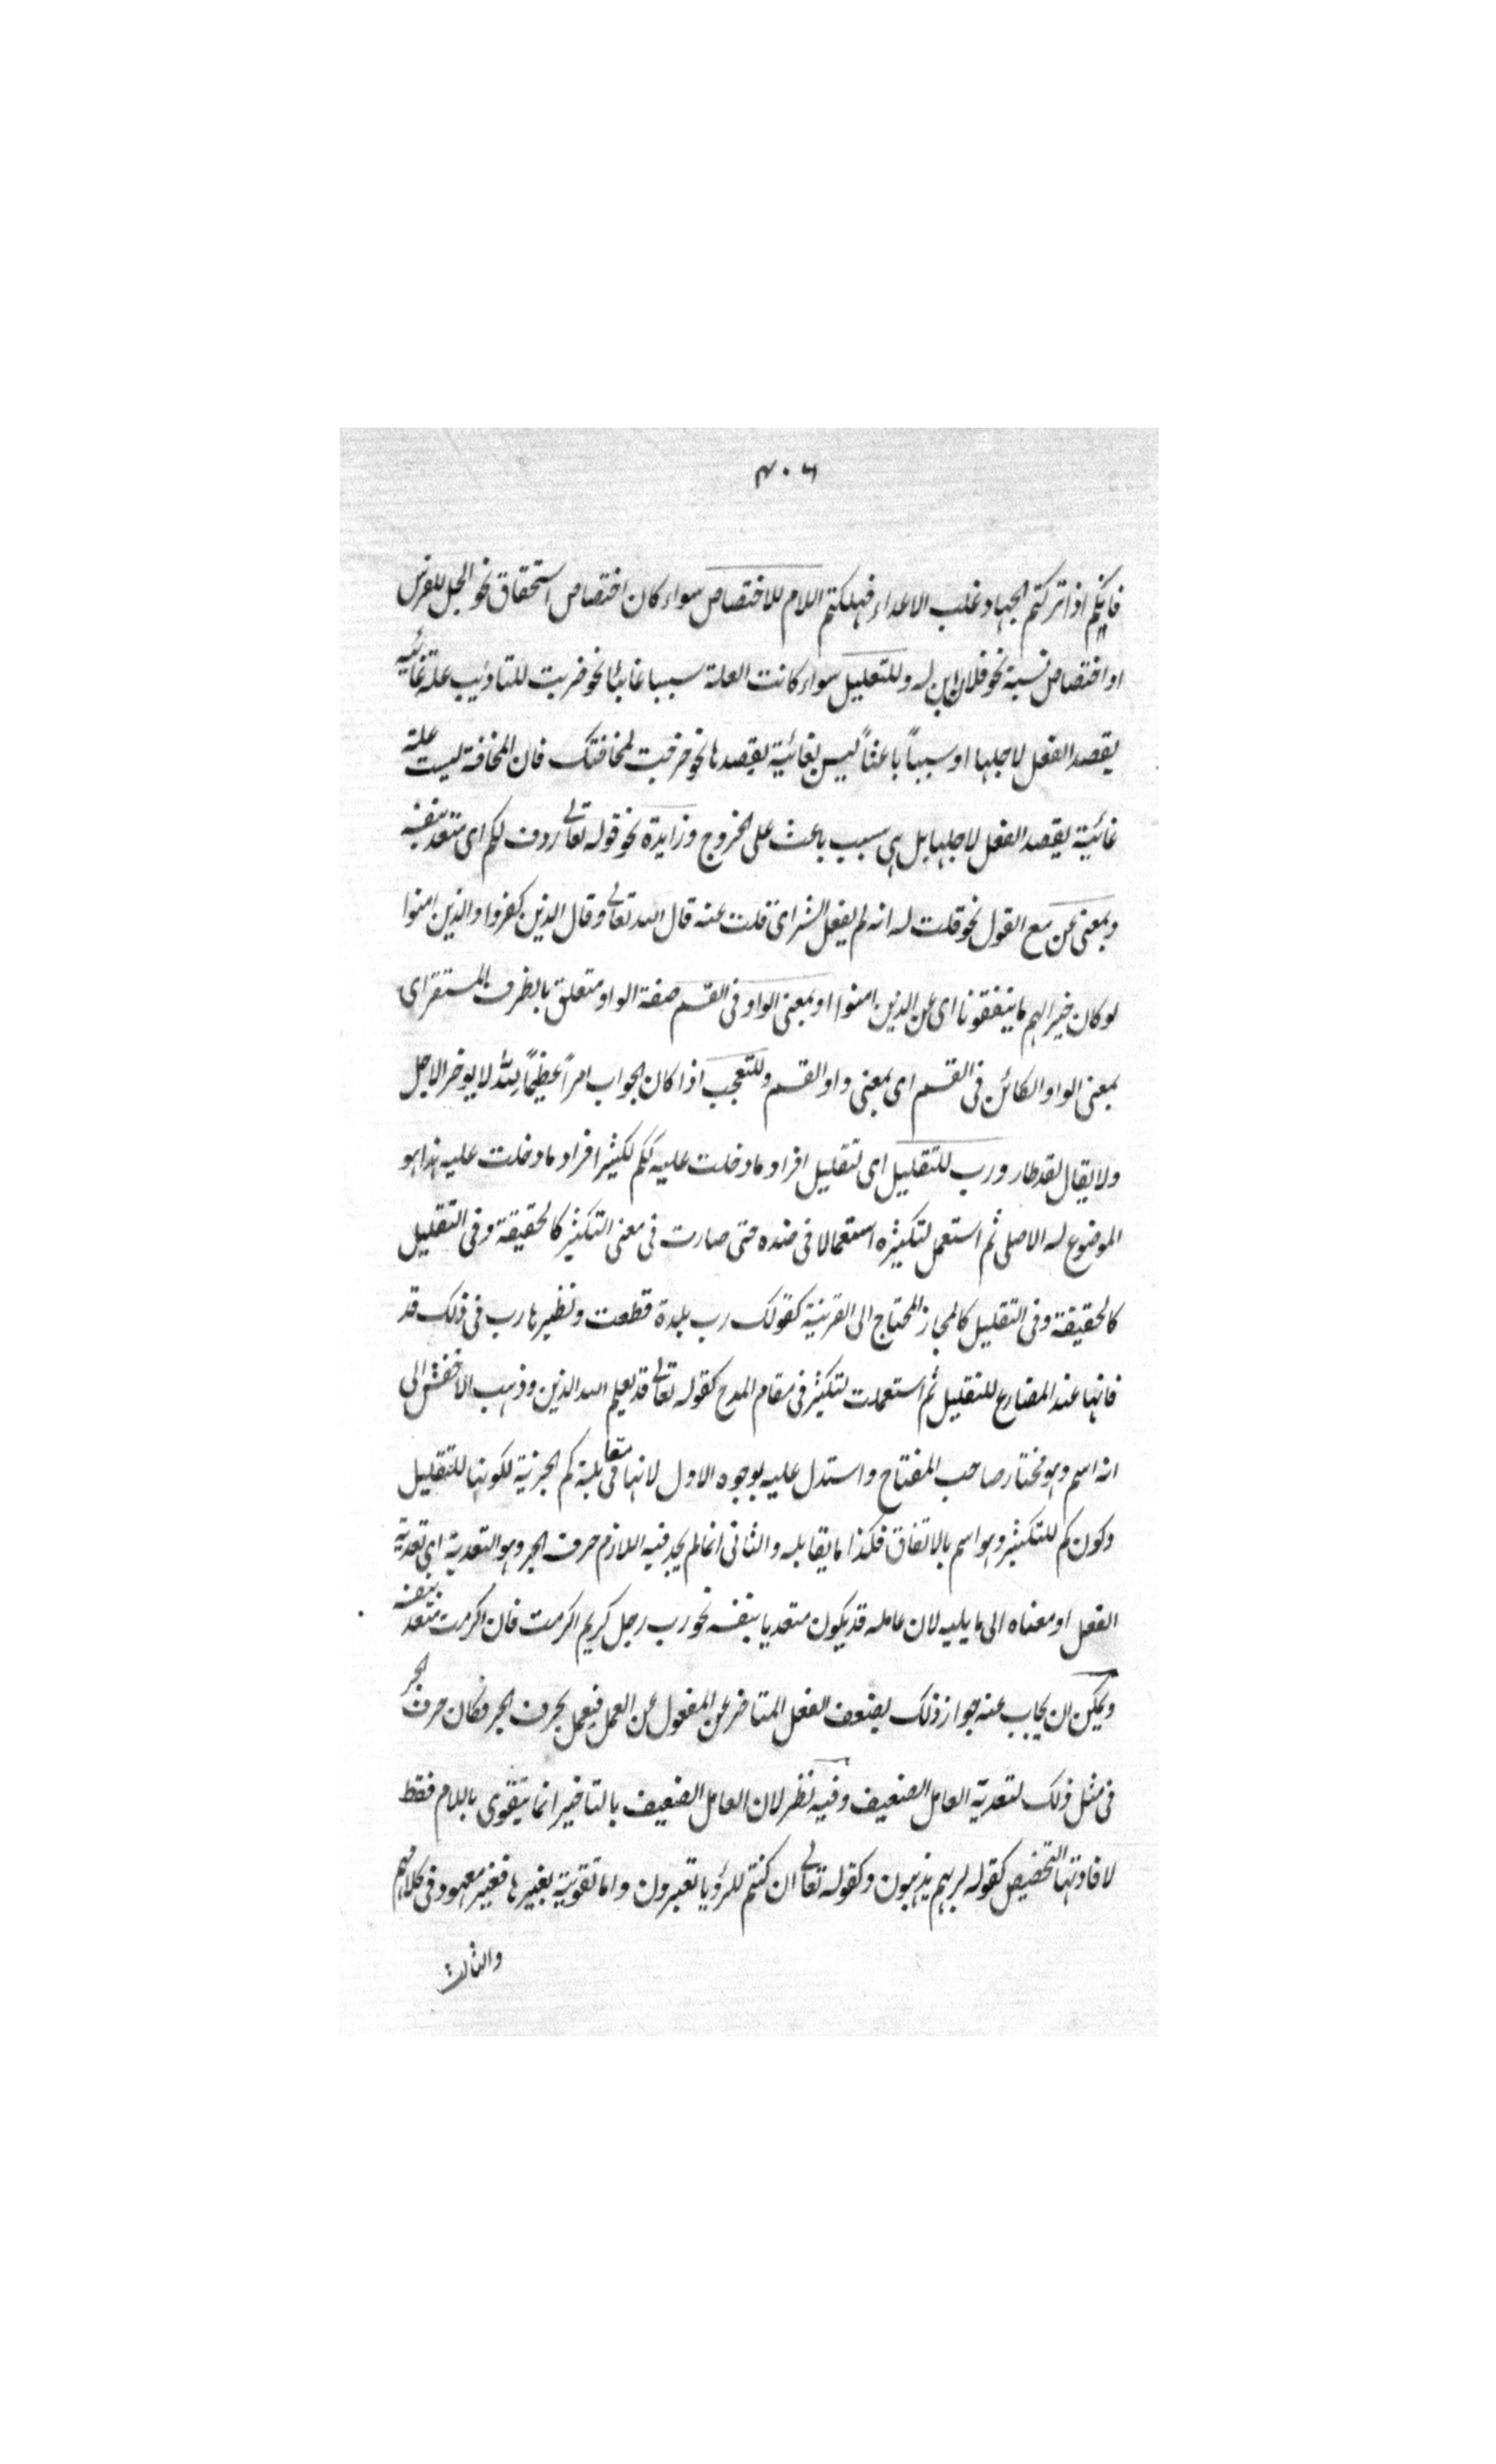 ٤٠٦
فانكم اذا تركتم الجهاد غلب الاعداء فهلكتم اللام للاختصاص سواء كان اختصاص استحقاق نحو الجل للفرس
او اختصاص نسبة نحو فلان ابن له وللتعليل سواء كانت العلة سببا غائيا نحو ضربت للتاديب علة غائية
يقصد الفعل لاجلها او سبباً باعثاً ليس بغائية يقصدها نحو خرجت لمخافتك فان المخافة ليست علة
غائية يقصد الفعل لاجلها بل هي سبب باعث على الخروج وزايدة نحو قوله تعالى ردف لكم اى متعد بنفسه
وبمعنى عن مع القول نحو قلت له انه لم يفعل الشر اى قلت عنه قال الله تعالى وقال الذين كفروا والذين امنوا
لو كان خيرا لهم ما ينفقونا اى عن الذين امنوا او بمعنى الواو فى القسم صفة الواو متعلق بالظرف المستقر اى
بمعنى الواو الكائن فى القسم اى بمعنى واو القسم وللتعجب اذا كان الجواب امراً عظيماً لله لا يوخر الاجل
ولا يقال لقد طار ورب للتقليل اى لتقليل افراد ما دخلت عليه لكم لكثير افراد ما دخلت عليه هذا هو
الموضوع له الاصلى ثم استعمل لتكثيره استعمالا فى ضده حتى صارت فى معنى التكثير كالحقيقة وفى التقليل
كالحقيقة وفى التقليل كالمجاز المحتاج الى القرينة كقولك رب بلدة قطعت ونظيرها رب فى ذلك قد
فانها عند المضارع للتقليل ثم استعملت لتكثير فى مقام المدح كقوله تعالى قد يعلم الله الذين وذهب الاخفش الى
انه اسم وهو مختار صاحب المفتاح واستدل عليه بوجوه الاول لانها فى مقابلة كم الخبرية لكونها للتقليل
وكون كم للتكثير وهو اسم بالاتفاق فكذا ما يقابله والثانى انما لم يجد فيه اللازم حرف الجر وهو التعدية اى تعدية
الفعل او معناه الى ما يليه لان عامله قد يكون متعديا بنفسه نحو رب رجل كريم اكرمت فان اكرمت متعد بنفسه
ويمكن ان يجاب عنه جواز ذلك بضعف الفعل المتاخر عن المفعول عن العمل فيعمل بحرف الجر فكان حرف الجر
فى مثل ذلك لتعدية العامل الضعيف وفيه نظر لان العامل الضعيف بالتاخير انما يتقوى باللام فقط
لافادتها التخصيص كقوله لربهم يذهبون وكقوله تعالى ان كنتم للرؤيا تعبرون واما تقوية بغيرها فغير معهود فى كلامهم
والثالث